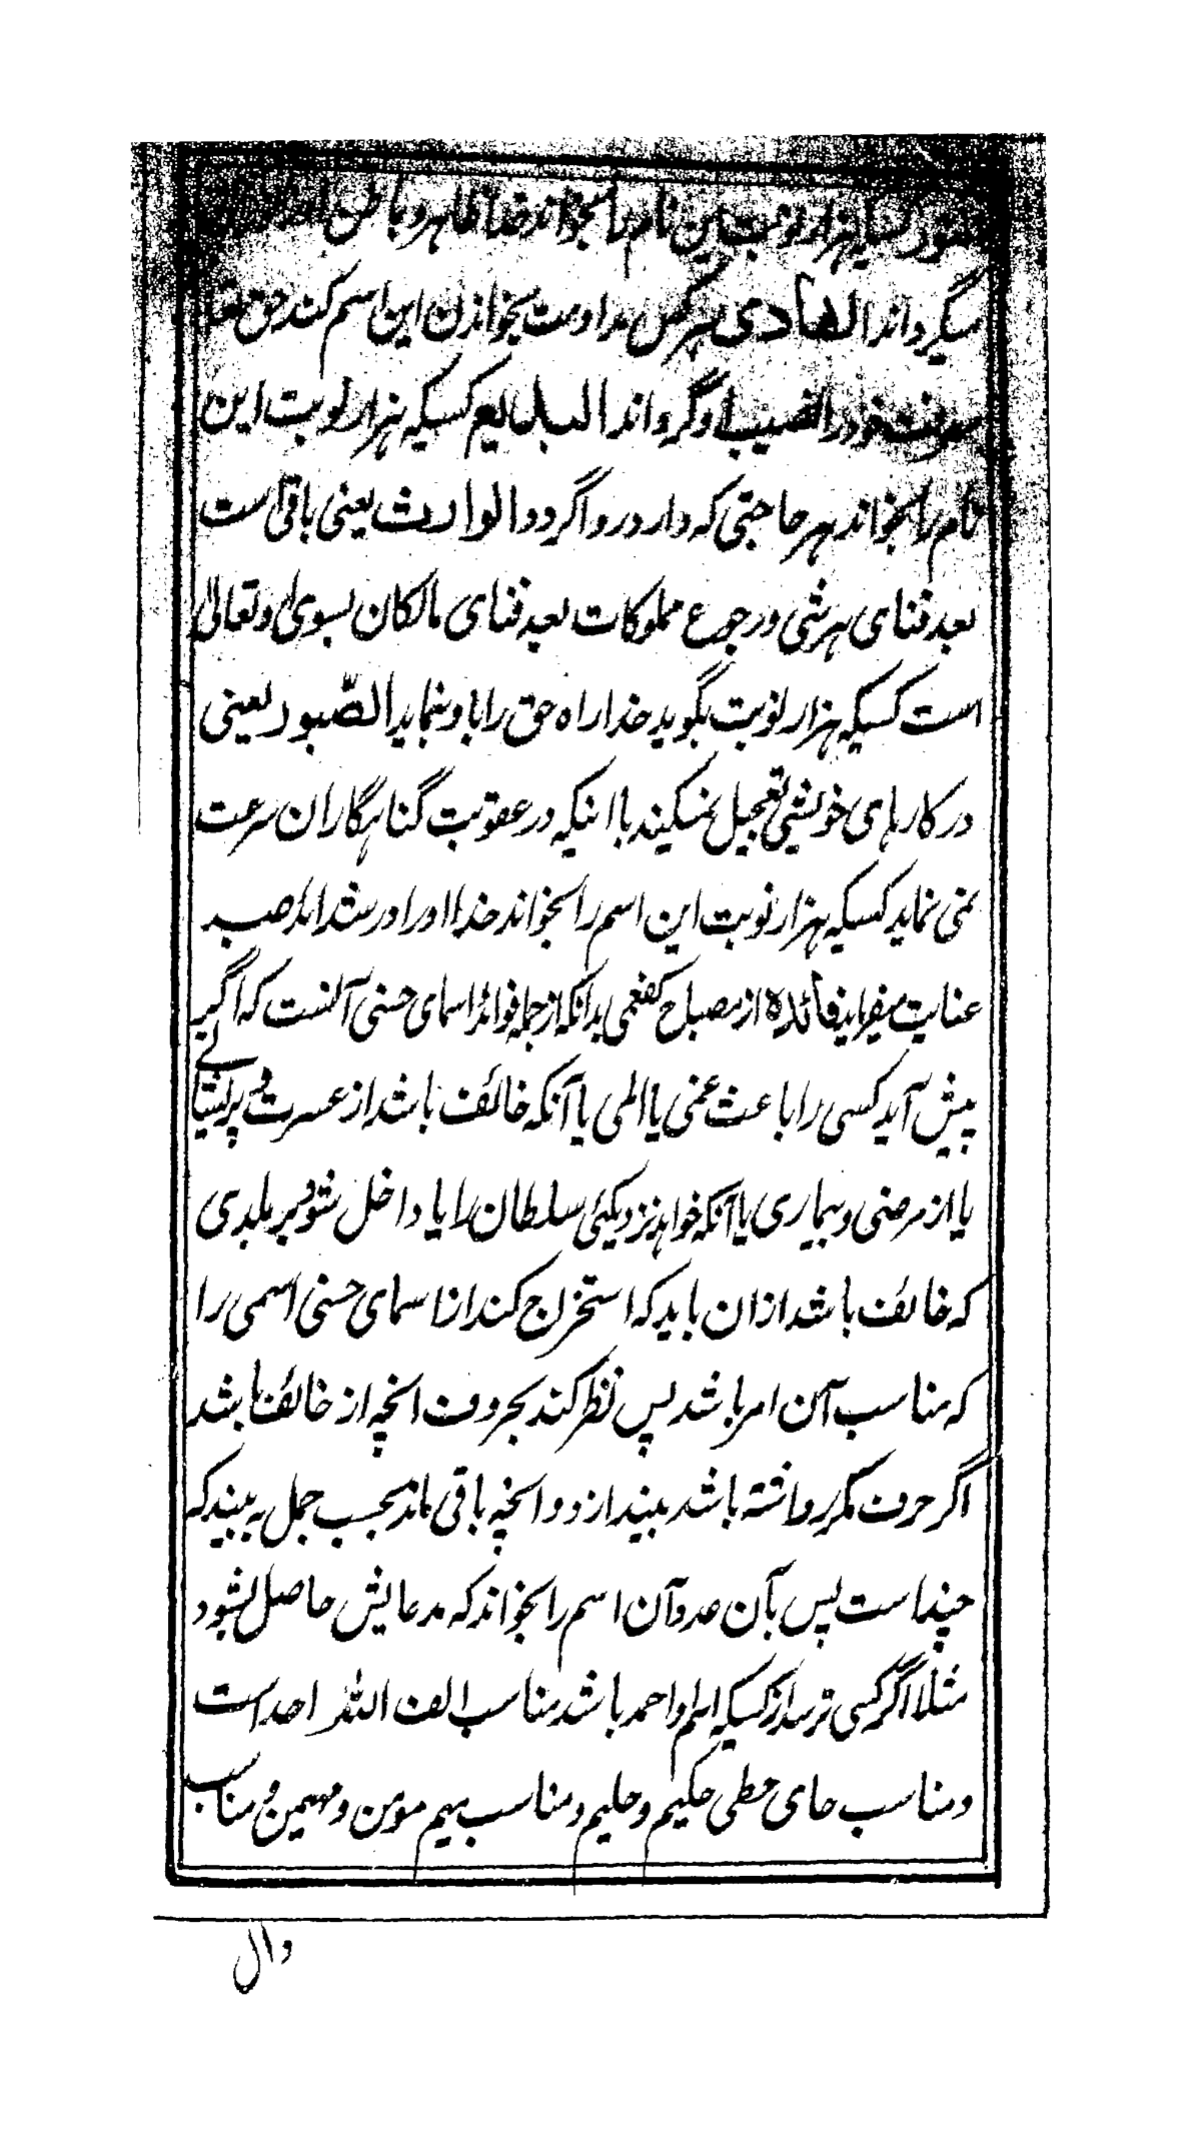 کسیکه هزار نوبت این نام را بخواند خدا ظاهر و باطن
میگرداند الهادی هر کس مداومت بخواندن این اسم کند حق تعا
معرفت خود را نصیب او گرواند البدیع کسیکه هزار نوبت این
نام را بخواند هر حاجتی که دارد روا گردد الوارث یعنی باقی است
بعد فنای هرشی و رجوع مملوکات بعد فنای مالکان بسوی او تعالی
است کسیکه هزار نوبت بگوید خدا راه حق را باو بنماید الصّبور یعنی
در کارهای خویش تعجیل نمیکند با اینکه در عقوبت گناهگاران سرعت
نمی نماید کسیکه هزار نوبت این اسم را بخواند خدا او را در شداید صبر
عنایت میفرماید فائده از مصباح کفعمی بدانکه از جمله فوائد اسمای حسنی آنست که اگر
پیش آید کسی را باعث غمی یا المی یا آنکه خائف باشد از عسرت و پریشانے
یا از مرضی و بیماری یا آنکه خواهد نزدیکئی سلطان را یا داخل شود بر بلدی
که خائف باشد ازان باید که استخراج کند از اسمای حسنی اسمی را
که مناسب آن امر باشد پس نظر کند بحروف انچه از خائف باشد
اگر حرف مکرر داشته باشد بیندازد و انچه باقی ماند بحسب جمل به بیند که
چند است پس بآن عدد آن اسم را بخواند که مدعایش حاصل بشود
مثلا اگر کسی ترسد از کسیکه اسم او احمد باشد مناسب الف اللّه احد است
و مناسب حای حطی حکیم و حلیم و مناسب میم مومن و مهیمن و مناسب
دال